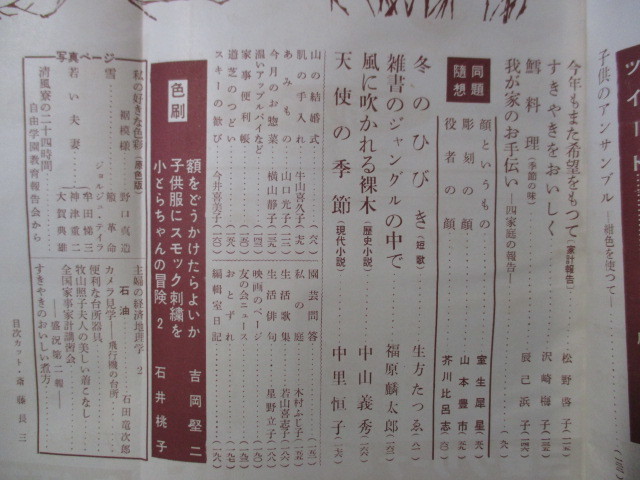 ツイード
子供のアンサンブル―紺色を使つて―
今年もまた希望をもつて(家計報告) 松野啓子
すきやきをおいしく 沢崎梅子
鱈料理(季節の味) 辰己浜子
我が家のお手伝い―四家庭の報告―
同題随想
顔というもの 室生犀星
彫刻の顔 山本豊市
役者の顔 芥川比呂志
冬のひびき(短歌) 生方たつゑ
雑書のジャングルの中で 福原麟太郎
風に吹かれる裸木(歴史小説) 中山義秀
天使の季節(現代小説) 中里恒子
山の結婚式
肌の手入れ 牛山喜久子
あみもの 山口光子
今月のお惣菜 横山静子
濃いアップルパイなど
家事便利帳
道芝のつどい
スキーの歓び 今井喜美子
園芸問答
私の庭 木村ふじ子
生活歌集 若山喜志子
生活俳句 星野立子
映画のページ
友の会ニュース
おとずれ
編輯室日記
色刷
額をどうかけたらよいか 吉岡堅二
子供服にスモック刺繍を
小とらちゃんの冒険 2 石井桃子
写真ページ
私の好きな色彩(原色版)
裾模様 野口真造
雪
ジョルジュ・テイラ
若い夫妻
牟田悌三
神池重二
大賀典雄
清風寮の二十四時間
自由学園教育報告会から
主婦の経済地理学 2
石油 石田竜次郎
カメラ見学―飛行機の台所―
便利な台所器具
牧山照子夫人の美しい着こなし
全国家事家計講習会
―盛況第二報―
すきやきのおいしい煮方
目次カット・斎藤長三